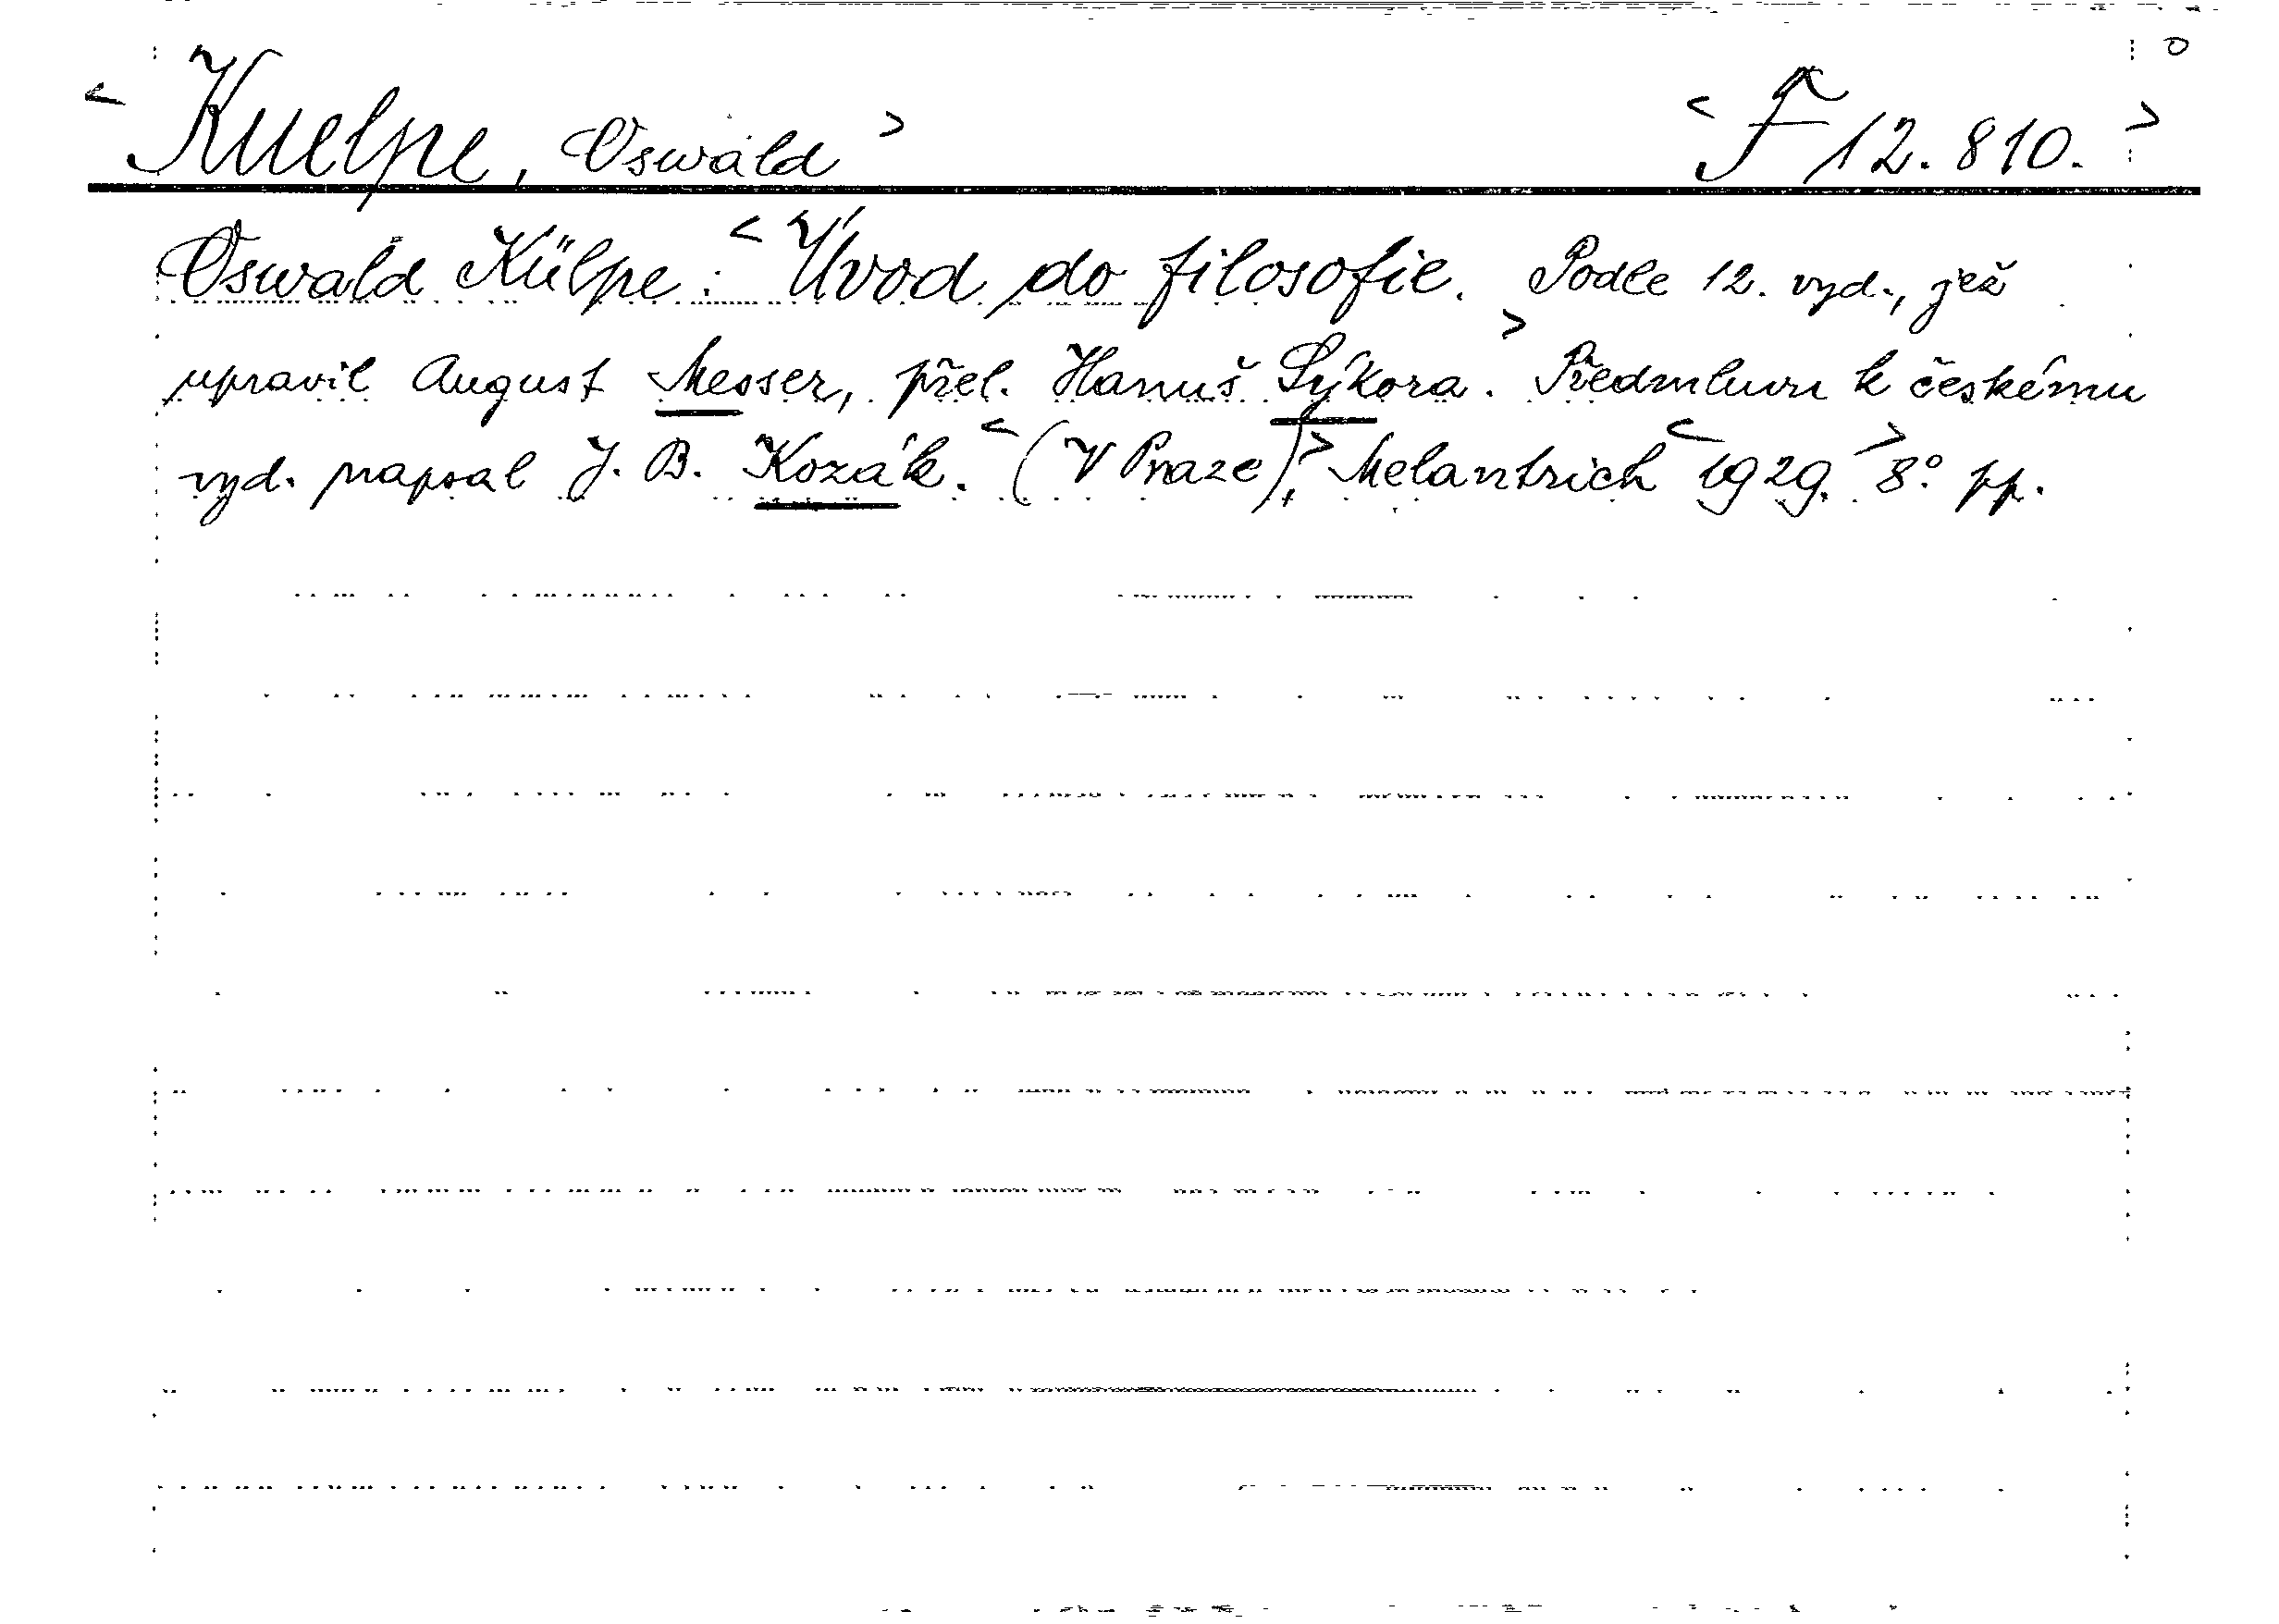 < Kuelpe, Oswald > < F 12.810. >
Oswald Külpe: < Úvod do filosofie. Podle 12. vyd., jež
upravil August Messer, přel. Hanuš Sýkora. > Předmluvu k českému
vyd. napsal J. B. Kozák. < (V Praze), > Melantrich < 1929. > 8° pp.